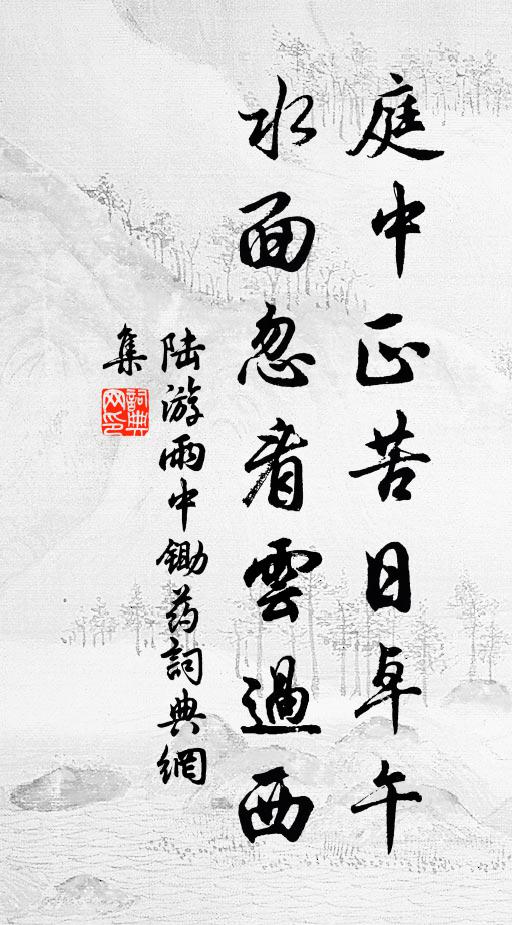 庭中正苦日卓午
水面忽看雲過西
陆游雨中锄药詞典網
集
詞典
网印